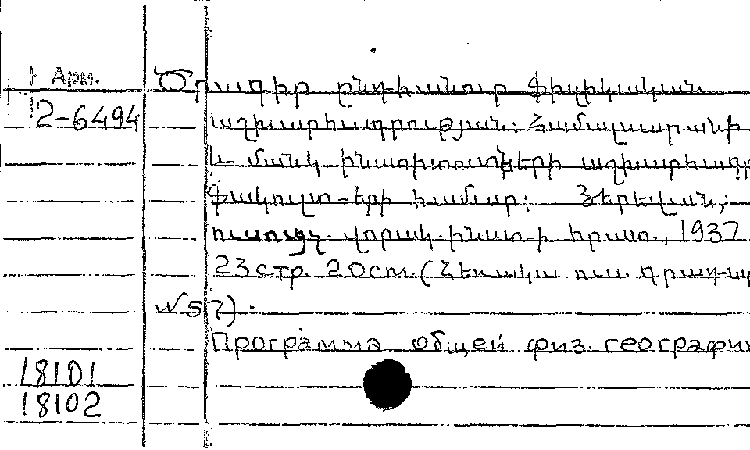 Арм.
2-6494
Ծրագիր ընդհանուր ֆիզիկական
աշխարհագրության: Համալսարանի
և մանկ ինստիտուտների աշխարհագր
ֆակուլտ-երի համար: Երևան,
ուսուցչ. կորակ. ինստ-ի հրատ., 1937
23 стр. 20 см. (Հեռակա ուս.
№57).
Программа общей физ. географии
18101
18102